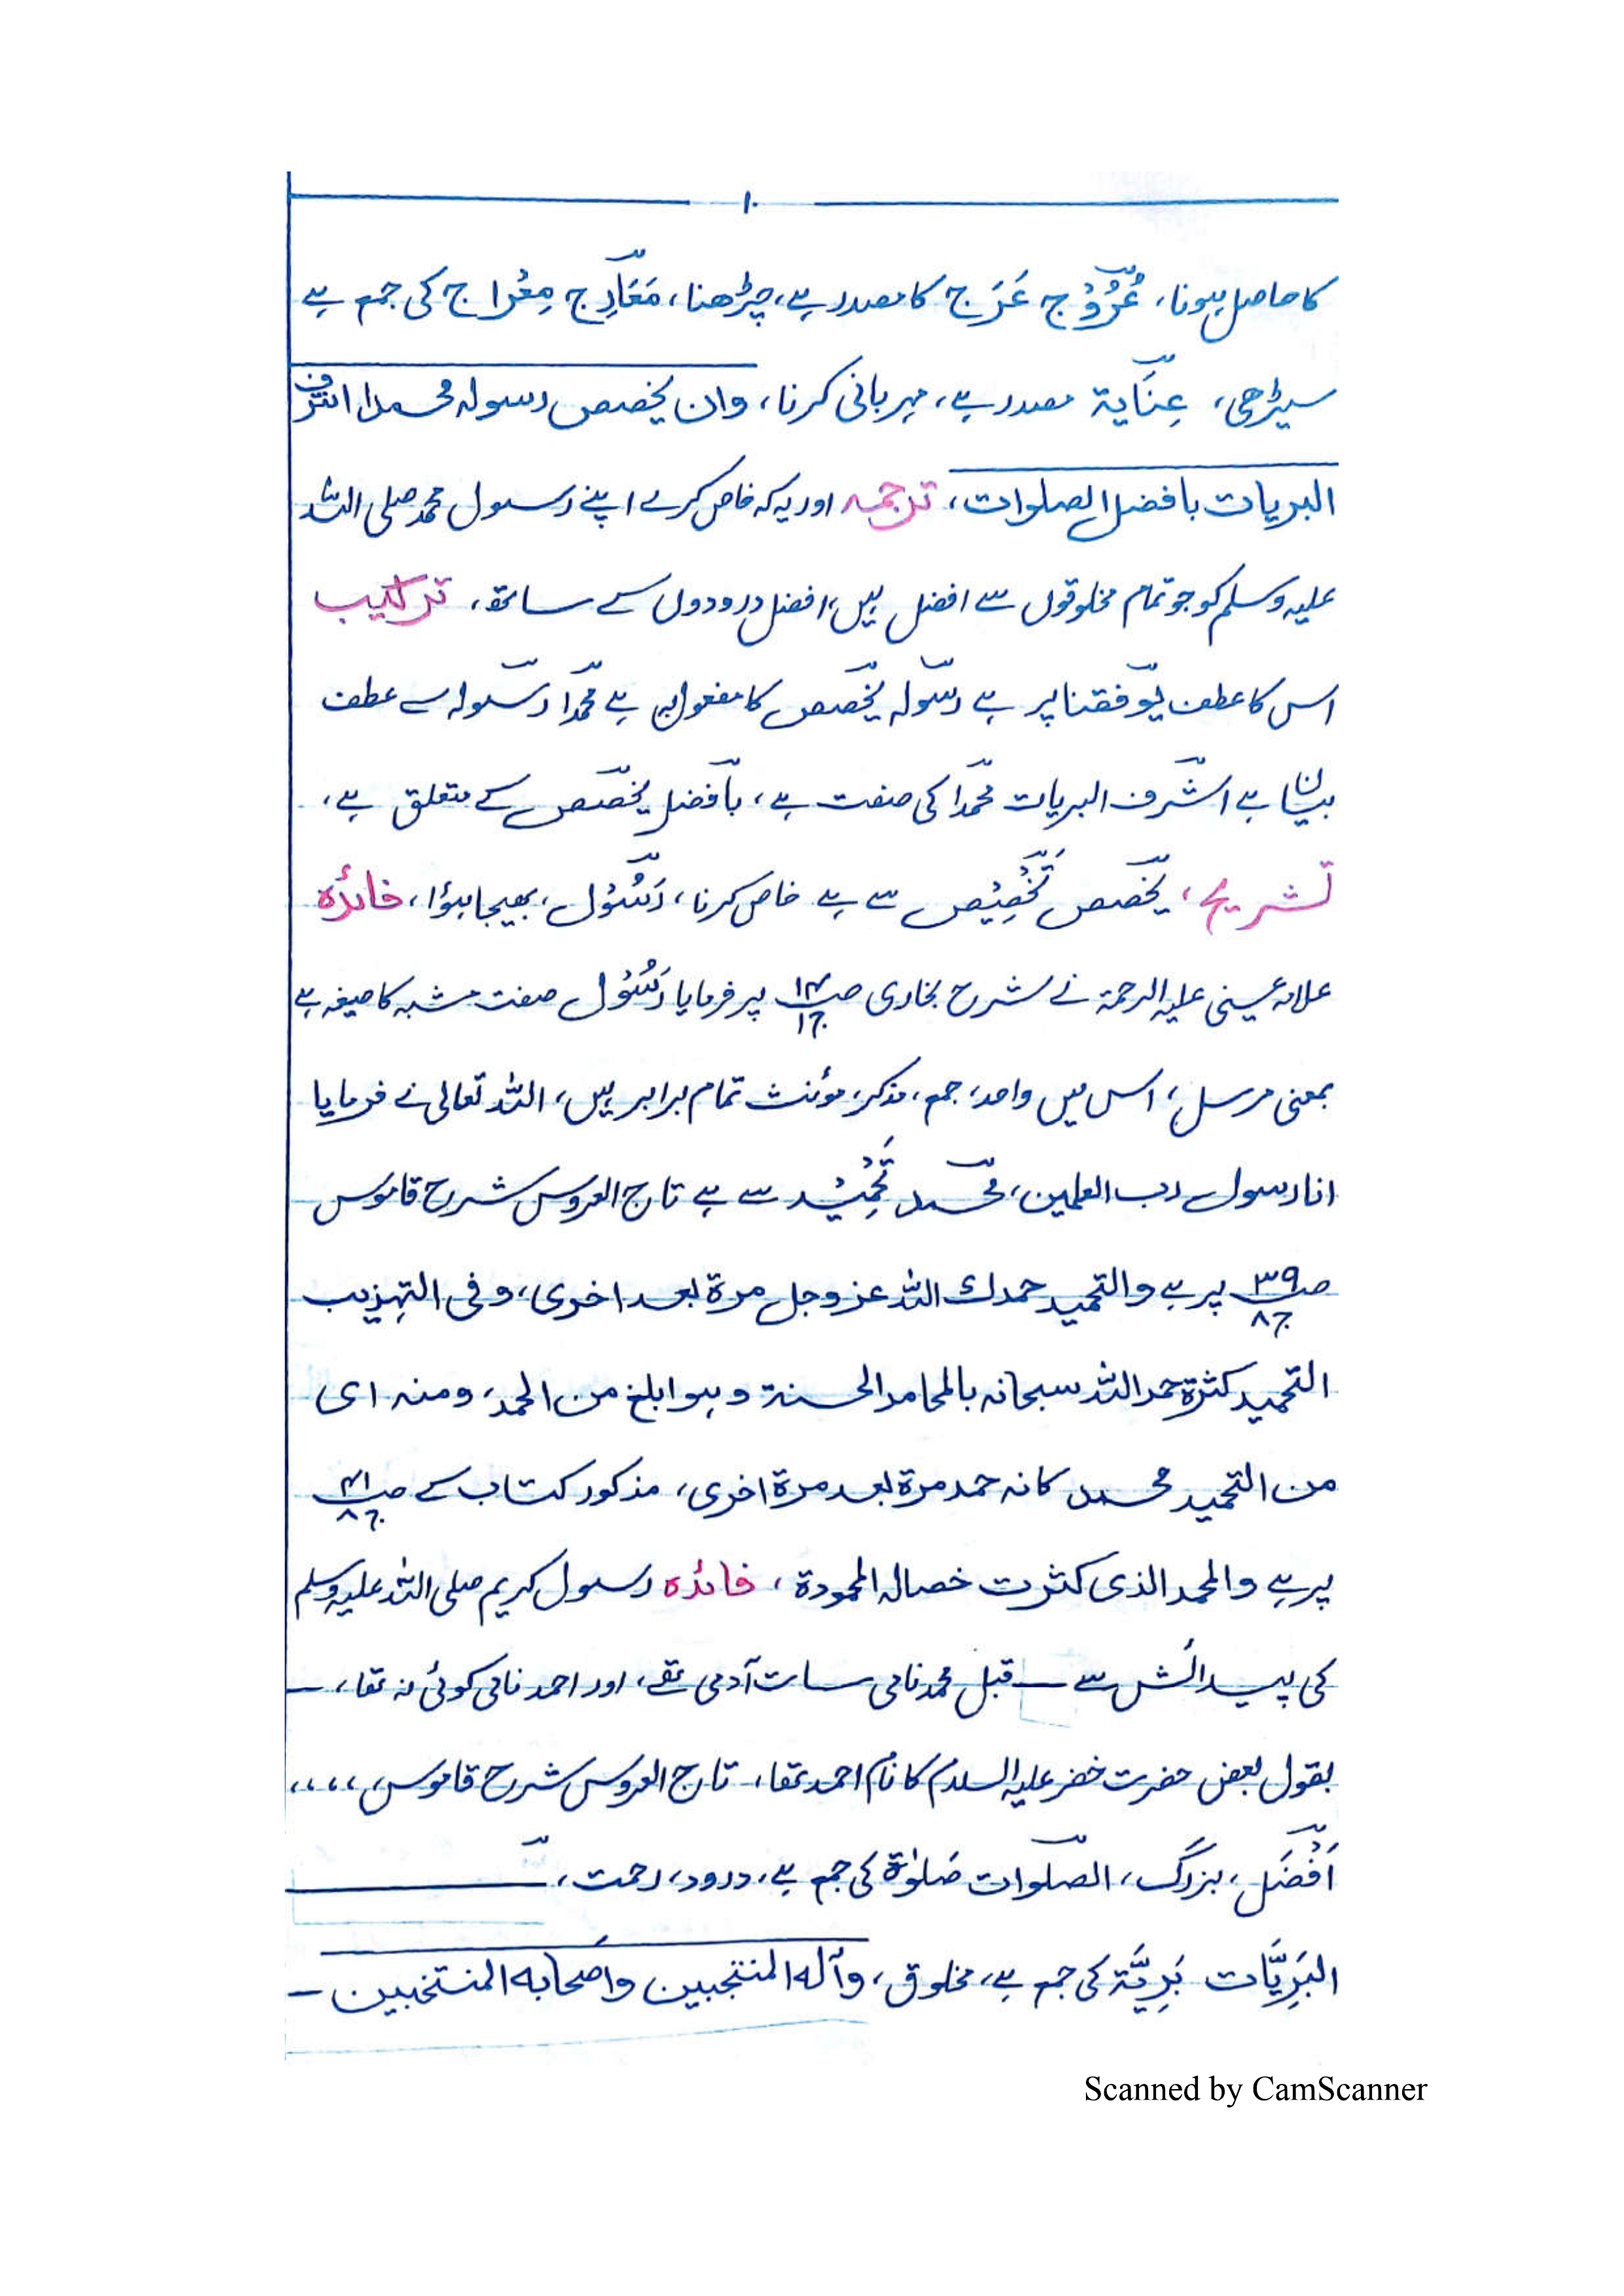 ۱۰
کا حاصل ہونا، عُرُوْج عَرَج کا مصدر ہے، چڑھنا، مَعَارِج مِعْراج کی جمع ہے
سیڑھی، عِنَایَة مصدر ہے، مہربانی کرنا، وان یخصص رسوله محمدا اشرف
البریات بافضل الصلوات، ترجمہ اور یہ کہ خاص کرے اپنے رسول محمد صلی اللہ
علیہ وسلم کو جو تمام مخلوقوں سے افضل ہیں، افضل درودوں کے ساتھ، ترکیب
اس کا عطف یوفقنا پر ہے رسولہ یخصص کا مفعول بہ ہے محمدا رسولہ سے عطف
بیان ہے اشرف البریات محمدا کی صفت ہے، بافضل یخصص کے متعلق ہے،
تشریح، یخصص تَخْصِیْص سے ہے خاص کرنا، رَسُوْل، بھیجا ہوا، فائدہ
علامہ عینی علیہ الرحمة نے شرح بخاری صـ۱۴ ج۱ پر فرمایا رَسُوْل صفت مشبہ کا صیغہ ہے
بمعنی مرسل، اس میں واحد، جمع، مذکر، مؤنث تمام برابر ہیں، اللہ تعالی نے فرمایا
انا رسول رب العلمین، محمد تَحْمِیْد سے ہے تاج العروس شرح قاموس
صـ۳۹ ج۸ پر ہے والتحمید حمدك اللہ عز وجل مرة بعد اخری، وفی التہذیب
التحمید کثرة حمد اللہ سبحانہ بالمحامد الحسنة وہو ابلغ من الحمد، ومنہ ای
من التحمید محمد کانہ حمد مرة بعد مرة اخری، مذکور کتاب کے صـ۴۱ ج۸
پر ہے والمحمد الذی کثرت خصالہ المحمودة، فائدہ رسول کریم صلی اللہ علیہ وسلم
کی پیدائش سے قبل محمد نامی سات آدمی تھے، اور احمد نامی کوئی نہ تھا، ـ
بقول بعض حضرت خضر علیہ السلام کا نام احمد تھا، تاج العروس شرح قاموس،،،،،
اَفْضَل، بزرگ، الصلوات صَلٰوة کی جمع ہے، درود، رحمت،
البَرِیَّات بَرِیَّة کی جمع ہے، مخلوق، وآله المنتجبین واصحابه المنتخبین ـ
Scanned by CamScanner